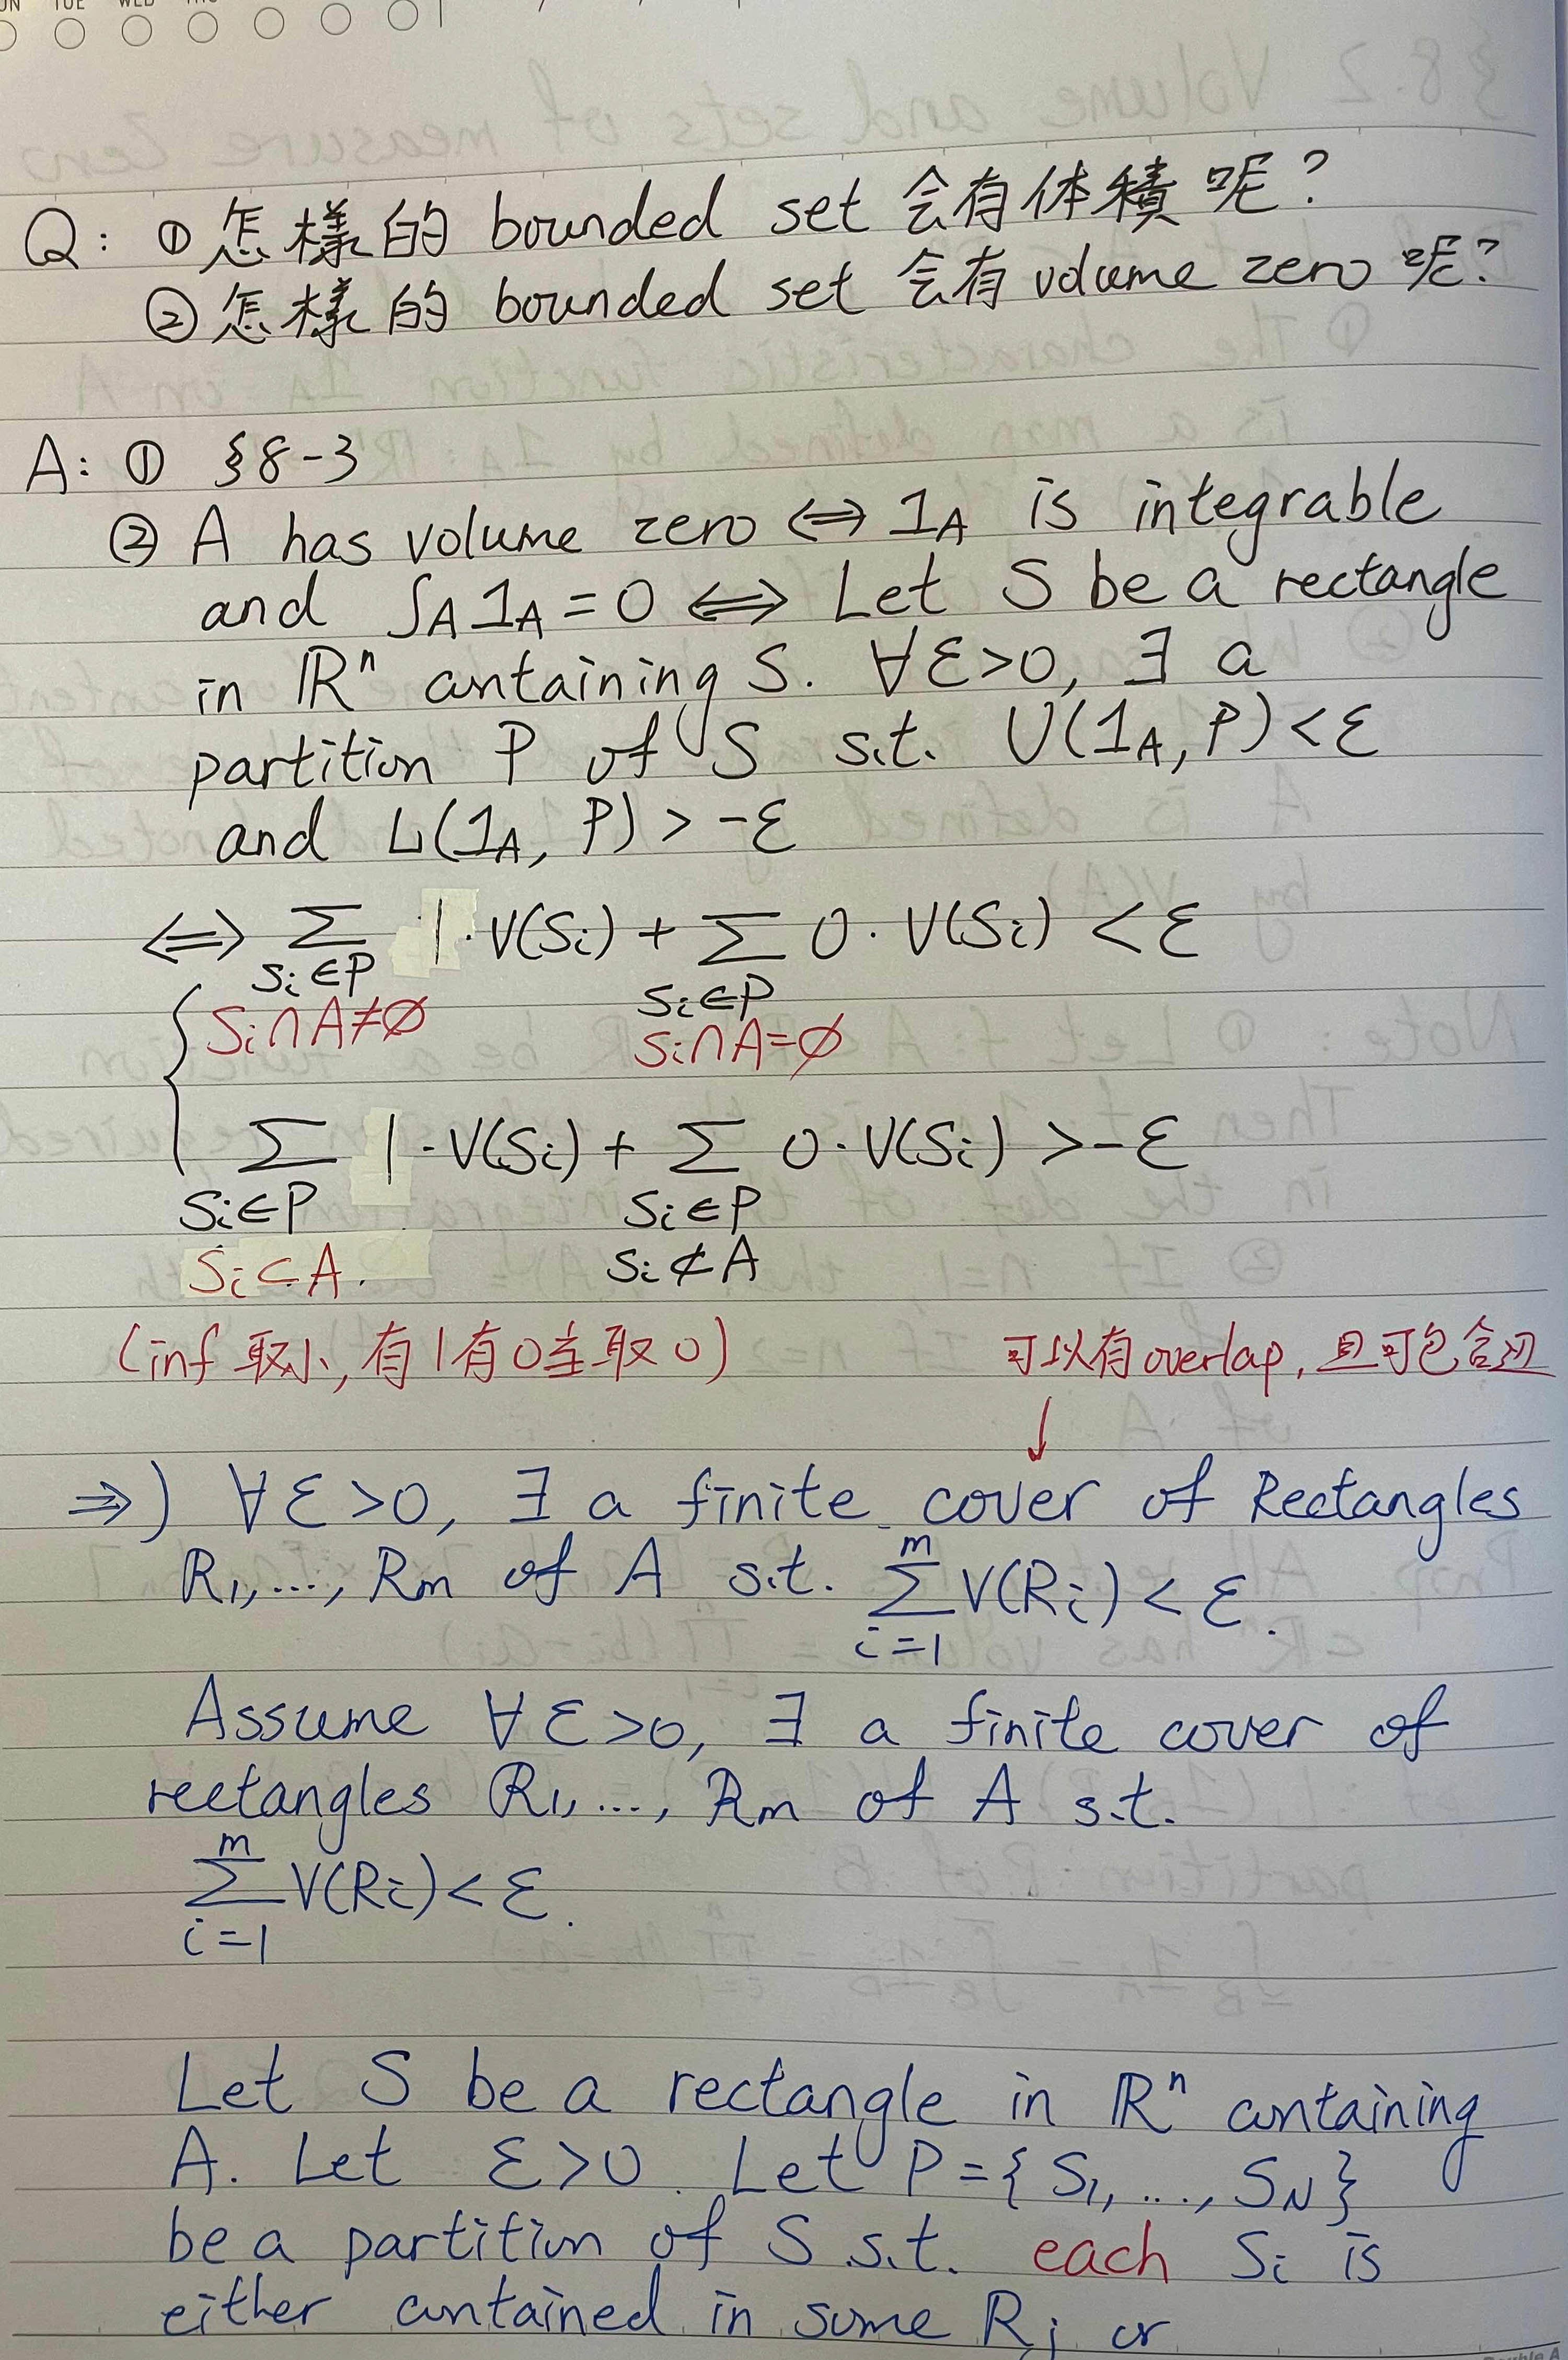 UN TUE WED THU
Q: ① 怎樣的 bounded set 会有体積呢?
② 怎樣的 bounded set 会有 volume zero 呢?
A: ① §8-3
② A has volume zero ⇔ 1_A is integrable
and ∫_A 1_A = 0 ⇔ Let S be a rectangle
in ℝⁿ containing S. ∀ε>0, ∃ a
partition P of S s.t. U(1_A, P) < ε
and L(1_A, P) > -ε
⇔ Σ 1·V(Si) + Σ 0·V(Si) < ε
Si∈P Si∈P
{ Si∩A≠∅ Si∩A=∅
Σ 1·V(Si) + Σ 0·V(Si) > -ε
Si∈P Si∈P
Si⊂A. Si⊄A
(inf 取小, 有1有0当取0) 可以有overlap, 且可包含边
↓
⇒) ∀ε>0, ∃ a finite cover of Rectangles
R1, ..., Rm of A s.t. Σ_{i=1}^{m} V(Ri) < ε.
Assume ∀ε>0, ∃ a finite cover of
rectangles R1, ..., Rm of A s.t.
Σ_{i=1}^{m} V(Ri) < ε.
Let S be a rectangle in ℝⁿ containing
A. Let ε>0. Let P={S1, ..., SN}
be a partition of S s.t. each Si is
either contained in some Rj or